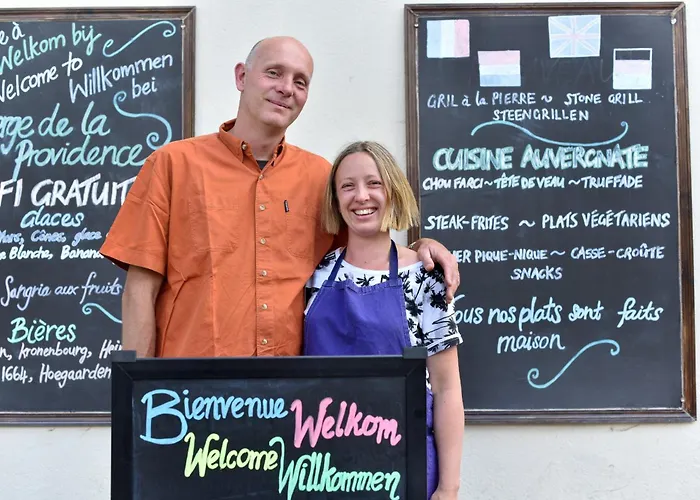 Welkom bij
Welcome to
Willkommen bei
de la
Providence
FI GRATUIT
glaces
Cônes, glace
Blanche, Banana
Sangria aux fruits
Bières
Kronenbourg, Hei
1664, Hoegaarden
GRIL à la PIERRE ~ STONE GRILL
STEENGRILLEN
CUISINE AUVERGNATE
CHOU FARCI ~ TÊTE DE VEAU ~ TRUFFADE
STEAK-FRITES ~ PLATS VÉGÉTARIENS
PIQUE-NIQUE ~ CASSE-CROÛTE
SNACKS
nos plats sont faits
maison
Bienvenue Welkom
Welcome Willkommen